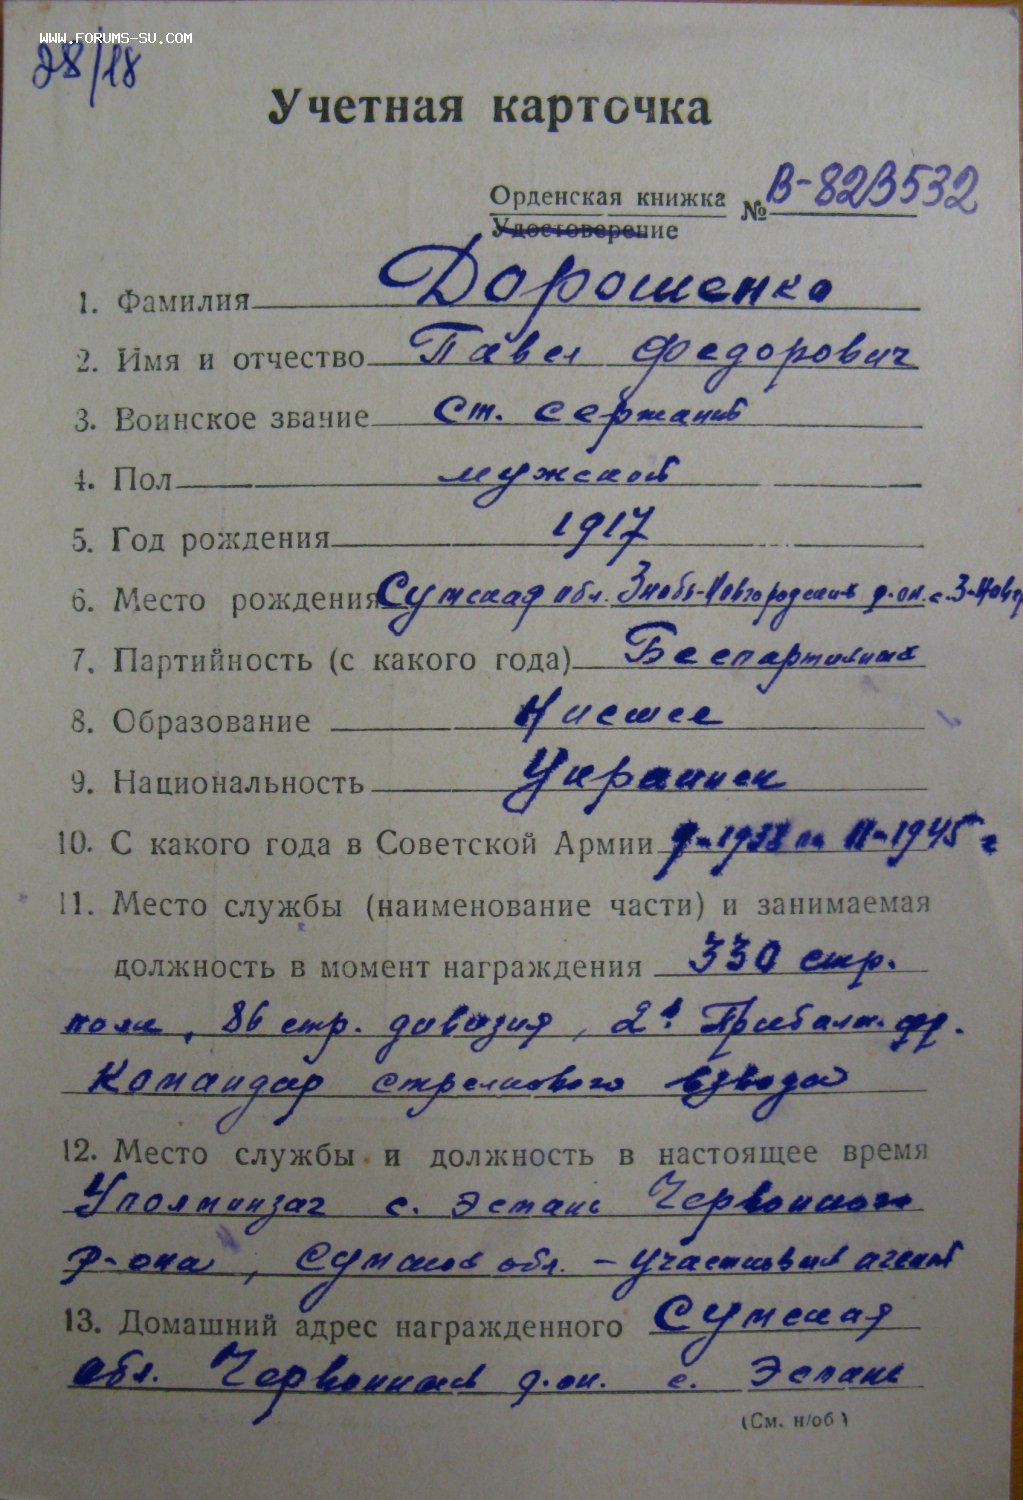 www.forums-su.com
28/18
Учетная карточка
Орденская книжка № В-823532
Удостоверение
1. Фамилия Дорошенко
2. Имя и отчество Павел Федорович
3. Воинское звание ст. сержант
4. Пол мужской
5. Год рождения 1917
6. Место рождения Сумская обл. Знобь-Новгородский р-он. с. З-Новгор
7. Партийность (с какого года) Беспартийный
8. Образование Низшее
9. Национальность Украинец
10. С какого года в Советской Армии 9-1938 по 11-1945 г
11. Место службы (наименование части) и занимаемая
должность в момент награждения 330 стр.
полк, 86 стр. дивизия, 2й Прибалт. фр.
Командир стрелкового взвода
12. Место службы и должность в настоящее время
с. Эстань Червонного
р-она, Сумской обл. - участковый агент
13. Домашний адрес награжденного Сумская
обл. Червонный р-он. с. Эстань
(См. н/об)